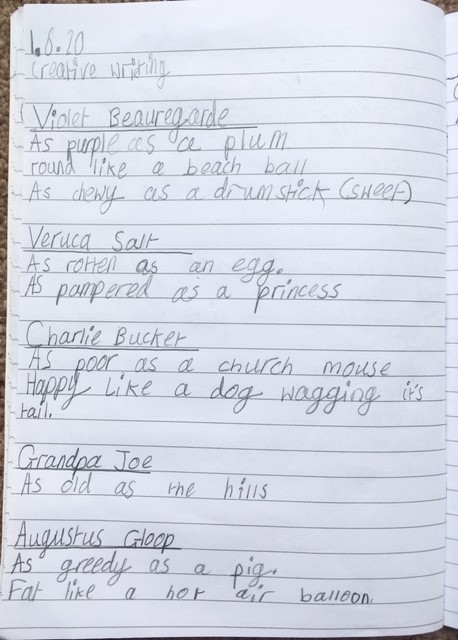 1.6.20
creative writing
Violet Beauregarde
As purple as a plum
round like a beach ball
As chewy as a drumstick (sweet)
Veruca Salt
As rotten as an egg.
As pampered as a princess
Charlie Bucket
As poor as a church mouse
Happy like a dog wagging it's
tail.
Grandpa Joe
As old as the hills
Augustus Gloop
As greedy as a pig.
Fat like a hot air balloon.